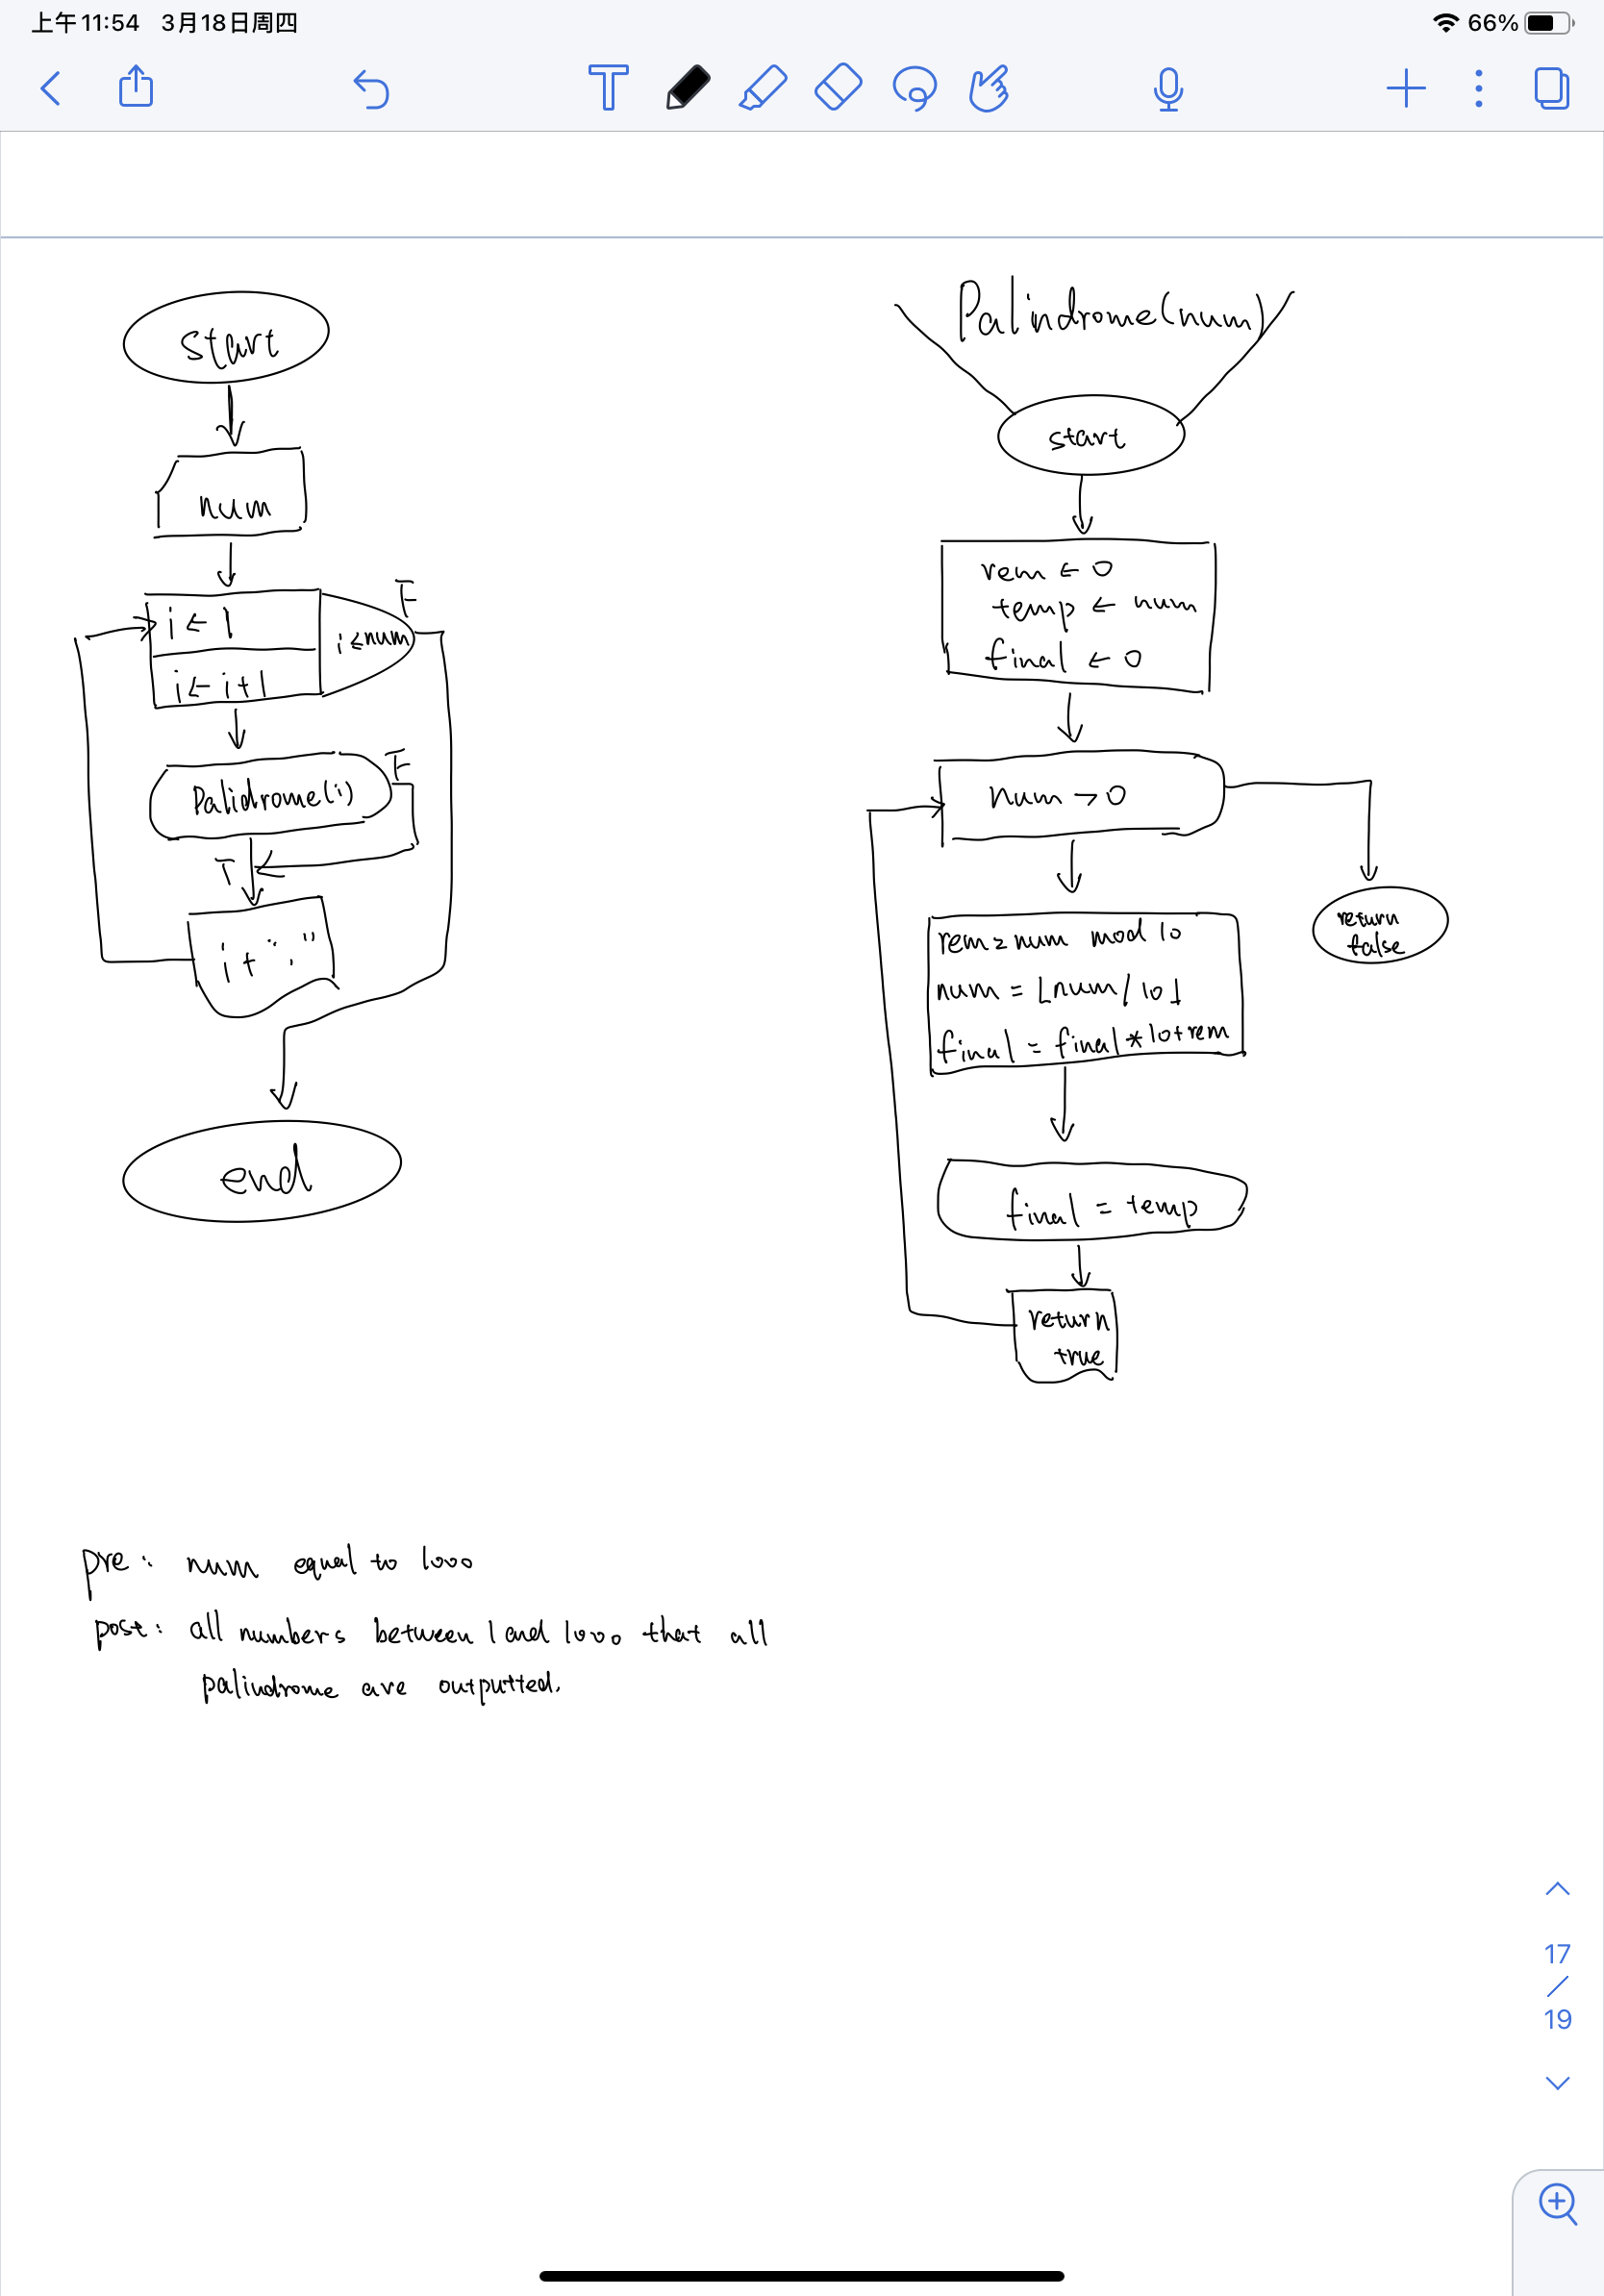 上午11:54 3月18日周四
66%
start
num
i ← 1
i ← i+1
i ≤ num
F
Palidrome(i)
F
T
i + ";"
end
Palindrome(num)
start
rem ← 0
temp ← num
final ← 0
num > 0
return
false
rem = num mod 10
num = ⌊num / 10⌋
final = final * 10 + rem
final = temp
return
true
pre: num equal to 1000
post: all numbers between 1 and 1000 that all
palindrome are outputted.
17
/
19